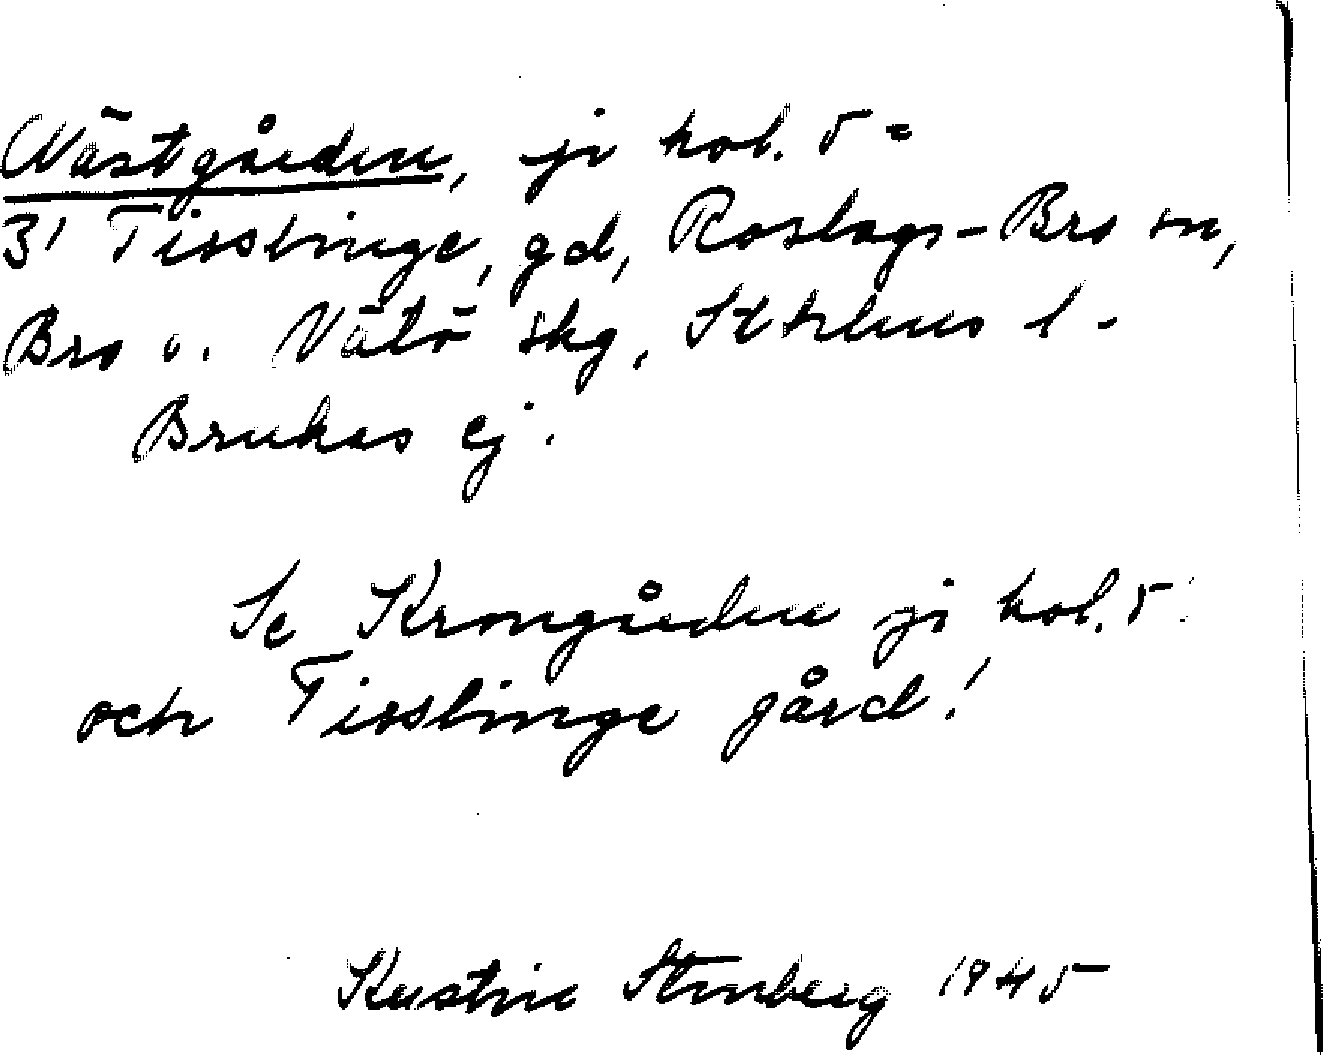 Västgården, jr kol. 5 =
31 Tisslinge, gd, Roslags-Bro sn,
Bro o. Vätö skg, Sthlms l -
Brukas ej.
Se Krongården jr kol. 5
och Tisslinge gård!
Stenberg 1945